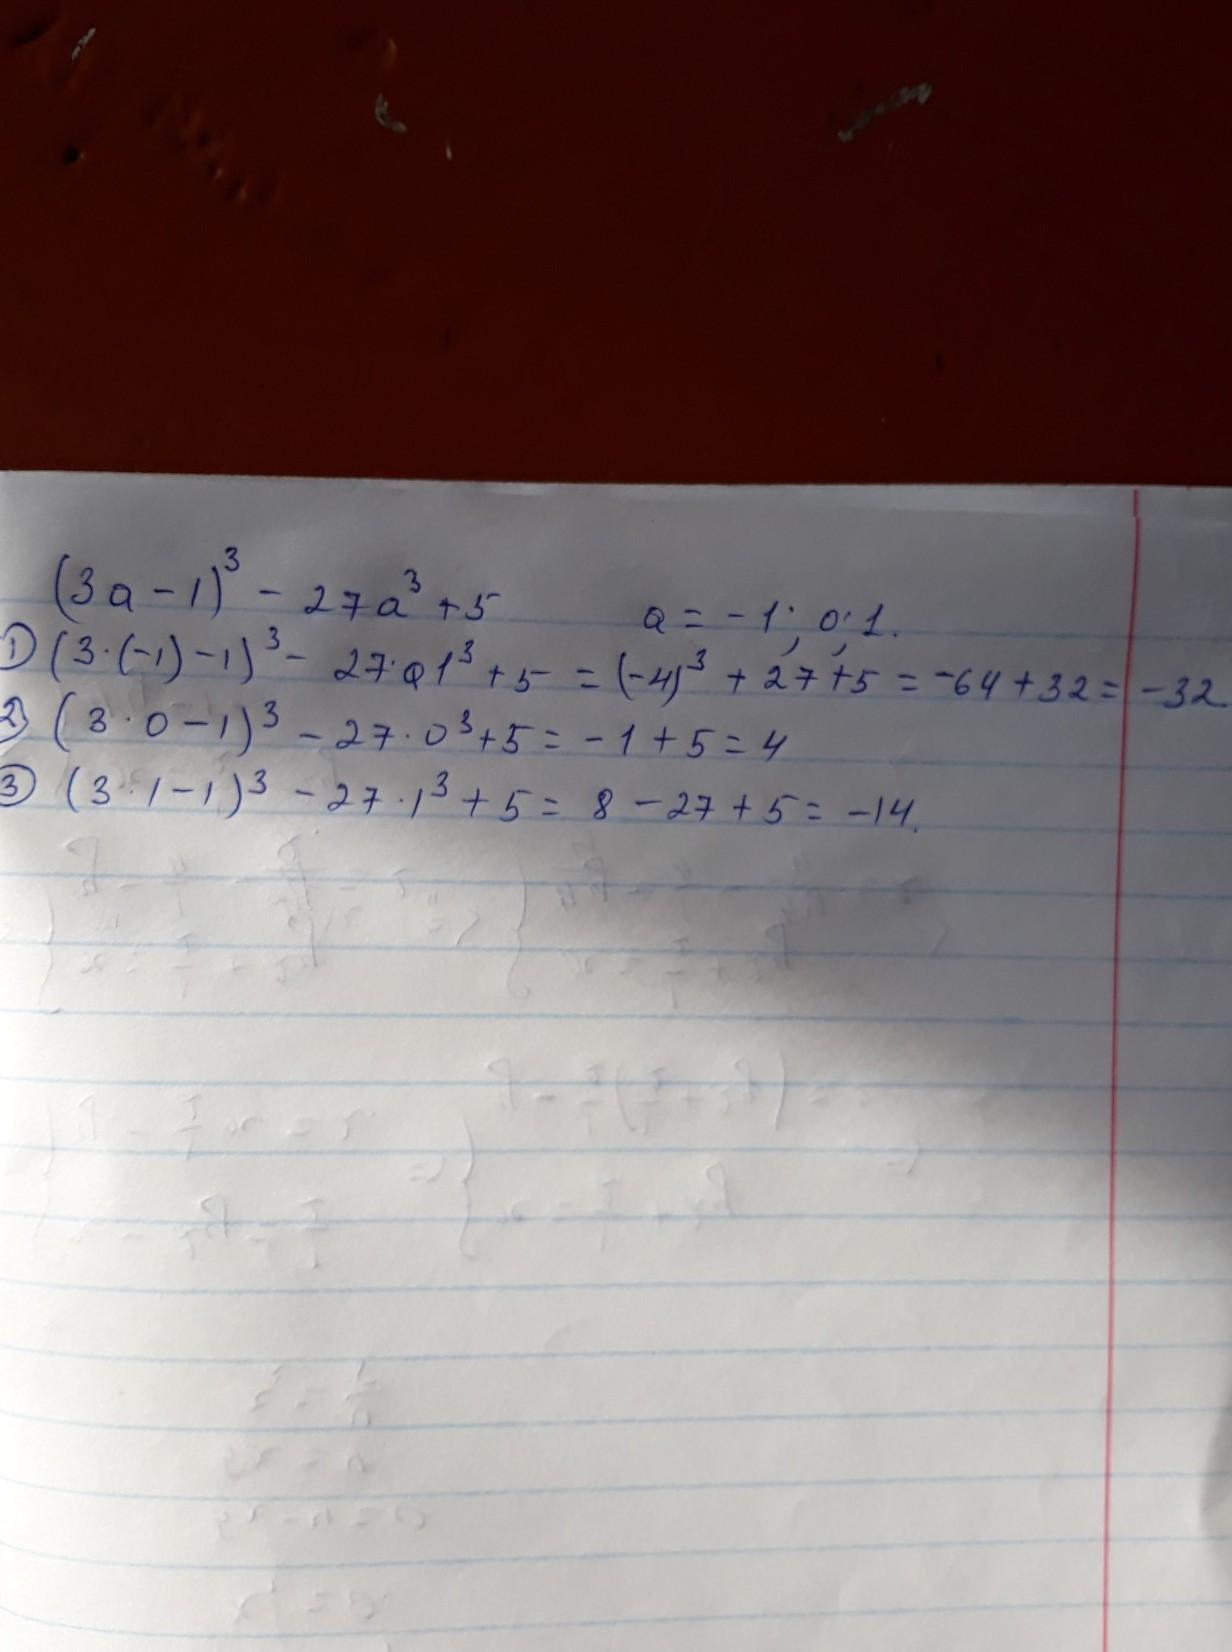 (3a-1)³ - 27a³ + 5 a = -1; 0; 1.
① (3·(-1)-1)³ - 27·a1³ + 5 = (-4)³ + 27 + 5 = -64 + 32 = -32.
② (3·0-1)³ - 27·0³ + 5 = -1 + 5 = 4
③ (3·1-1)³ - 27·1³ + 5 = 8 - 27 + 5 = -14.